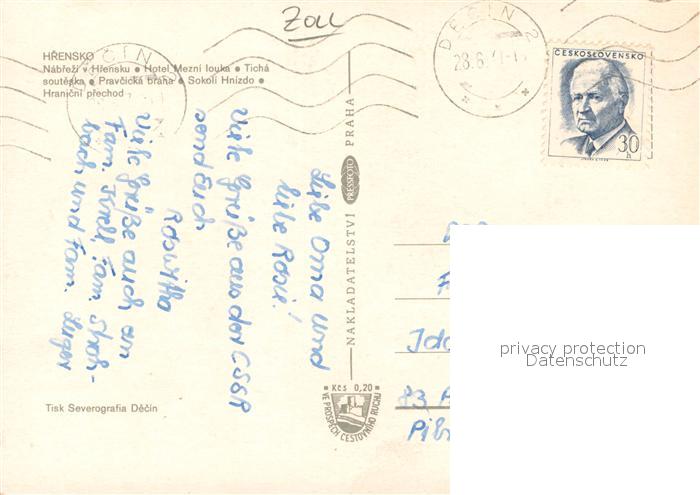 Zoll
HŘENSKO
Nábřeží v Hřensku • Hotel Mezní louka • Tichá
soutěska • Pravčická brána • Sokolí Hnízdo •
Hraniční přechod
DĚČÍN 2
28.6.
ČESKOSLOVENSKO
30
h
Liebe Oma und
liebe Rosie!
Viele Grüße aus der CSSR
sendet Euch
Roswitha
Viele Grüße auch an
Fam.
Fam.
bach und Fam.
NAKLADATELSTVÍ PRESSFOTO PRAHA
Kčs 0,20
VE PROSPĚCH CESTOVNÍHO RUCHU
Tisk Severografia Děčín
Ida
83
privacy protection
Datenschutz